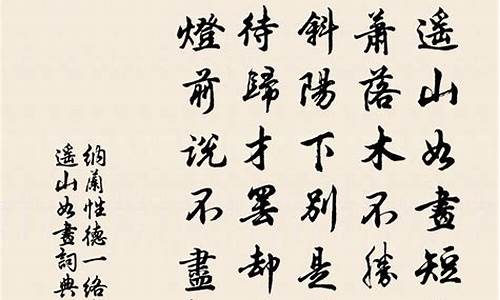 遥山如畫短
蕭落木不勝
斜陽下別是
待歸才罷却
燈前说不盡
納蘭性德一络
遥山如畫詞典